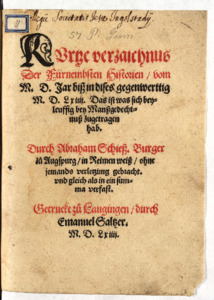 Kurtze verzaichnus
Der Fürnembsten Historien / vom
M. D. Jar biß in dises gegenwertig
M. D. Lxiiij. Das ist was sich bey-
leuffig bey Mannßgedecht-
nuß zugetragen
hab.
Durch Abraham Schieß. Burger
zů Augspurg / in Reimen weiß / ohne
jemands verletzung gebracht.
vnd gleich als in ein sum-
ma verfast.
Getruckt zů Laugingen / durch
Emanuel Saltzer.
M. D. Lxiiij.